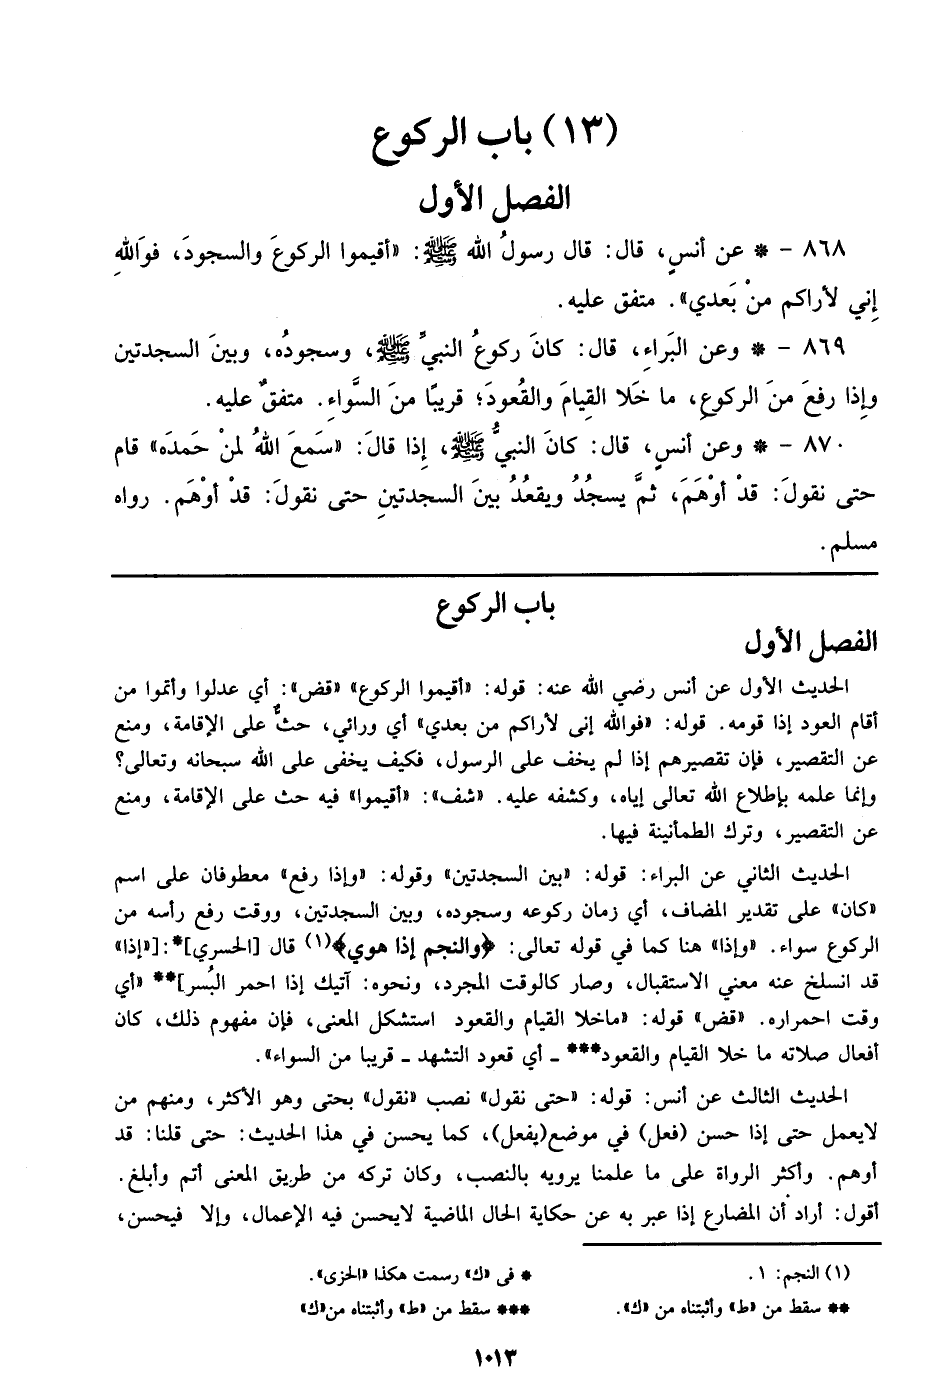 (١٣) باب الركوع
الفصل الأول
٨٦٨ - * عن أنسٍ، قال: قال رسولُ الله ﷺ: «أقيموا الركوعَ والسجودَ، فوَاللهِ
إِني لأراكم منْ بَعدي». متفق عليه.
٨٦٩ - * وعن البَراءِ، قال: كانَ ركوعُ النبيِّ ﷺ، وسجودُه، وبينَ السجدتين
وإِذا رفعَ منَ الركوعِ، ما خَلا القِيامَ والقُعودَ؛ قريبًا منَ السَّواءِ. متفقٌ عليه.
٨٧٠ - * وعن أنسٍ، قال: كانَ النبيُّ ﷺ، إِذا قالَ: «سَمعَ اللهُ لمنْ حَمدَه» قام
حتى نقولَ: قدْ أوْهَمَ، ثمَّ يسجُدُ ويقعُدُ بينَ السجدتينِ حتى نقولَ: قدْ أوْهَم. رواه
مسلم.
باب الركوع
الفصل الأول
الحديث الأول عن أنس رضي الله عنه: قوله: «أقيموا الركوع» «قض»: أي عدلوا وأتموا من
أقام العود إذا قومه. قوله: «فوالله إنى لأراكم من بعدي» أي ورائي، حثٌّ على الإقامة، ومنع
عن التقصير، فإن تقصيرهم إذا لم يخف على الرسول، فكيف يخفى على الله سبحانه وتعالى؟
وإنما علمه بإطلاع الله تعالى إياه، وكشفه عليه. «شف»: «أقيموا» فيه حث على الإقامة، ومنع
عن التقصير، وترك الطمأنينة فيها.
الحديث الثاني عن البراء: قوله: «بين السجدتين» وقوله: «وإذا رفع» معطوفان على اسم
«كان» على تقدير المضاف، أي زمان ركوعه وسجوده، وبين السجدتين، ووقت رفع رأسه من
الركوع سواء. «وإذا» هنا كما في قوله تعالى: ﴿والنجم إذا هوي﴾(١) قال [الحسري]*:[«إذا»
قد انسلخ عنه معني الاستقبال، وصار كالوقت المجرد، ونحوه: آتيك إذا احمر البُسر]** «أي
وقت احمراره. «قض» قوله: «ماخلا القيام والقعود استشكل المعنى، فإن مفهوم ذلك، كان
أفعال صلاته ما خلا القيام والقعود*** ـ أي قعود التشهد ـ قريبا من السواء».
الحديث الثالث عن أنس: قوله: «حتى نقول» نصب «نقول» بحتى وهو الأكثر، ومنهم من
لايعمل حتى إذا حسن (فعل) في موضع(يفعل)، كما يحسن في هذا الحديث: حتى قلنا: قد
أوهم. وأكثر الرواة على ما علمنا يرويه بالنصب، وكان تركه من طريق المعنى أتم وأبلغ.
أقول: أراد أن المضارع إذا عبر به عن حكاية الحال الماضية لايحسن فيه الإعمال، وإلا فيحسن،
(١) النجم: ١.
* فى «ك» رسمت هكذا «الحزى».
** سقط من «ط» وأثبتناه من «ك».
*** سقط من «ط» وأثبتناه من«ك»
١٠١٣